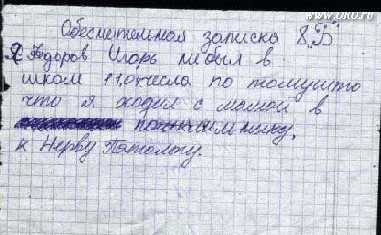 www.URO.ru
Обеснительная записка 8 Б
Я Федоров Игорь не был в
школ 11,0 числа по томушто
что я ходил с мамой в
полтклтнику,
к Нерву Потологу.